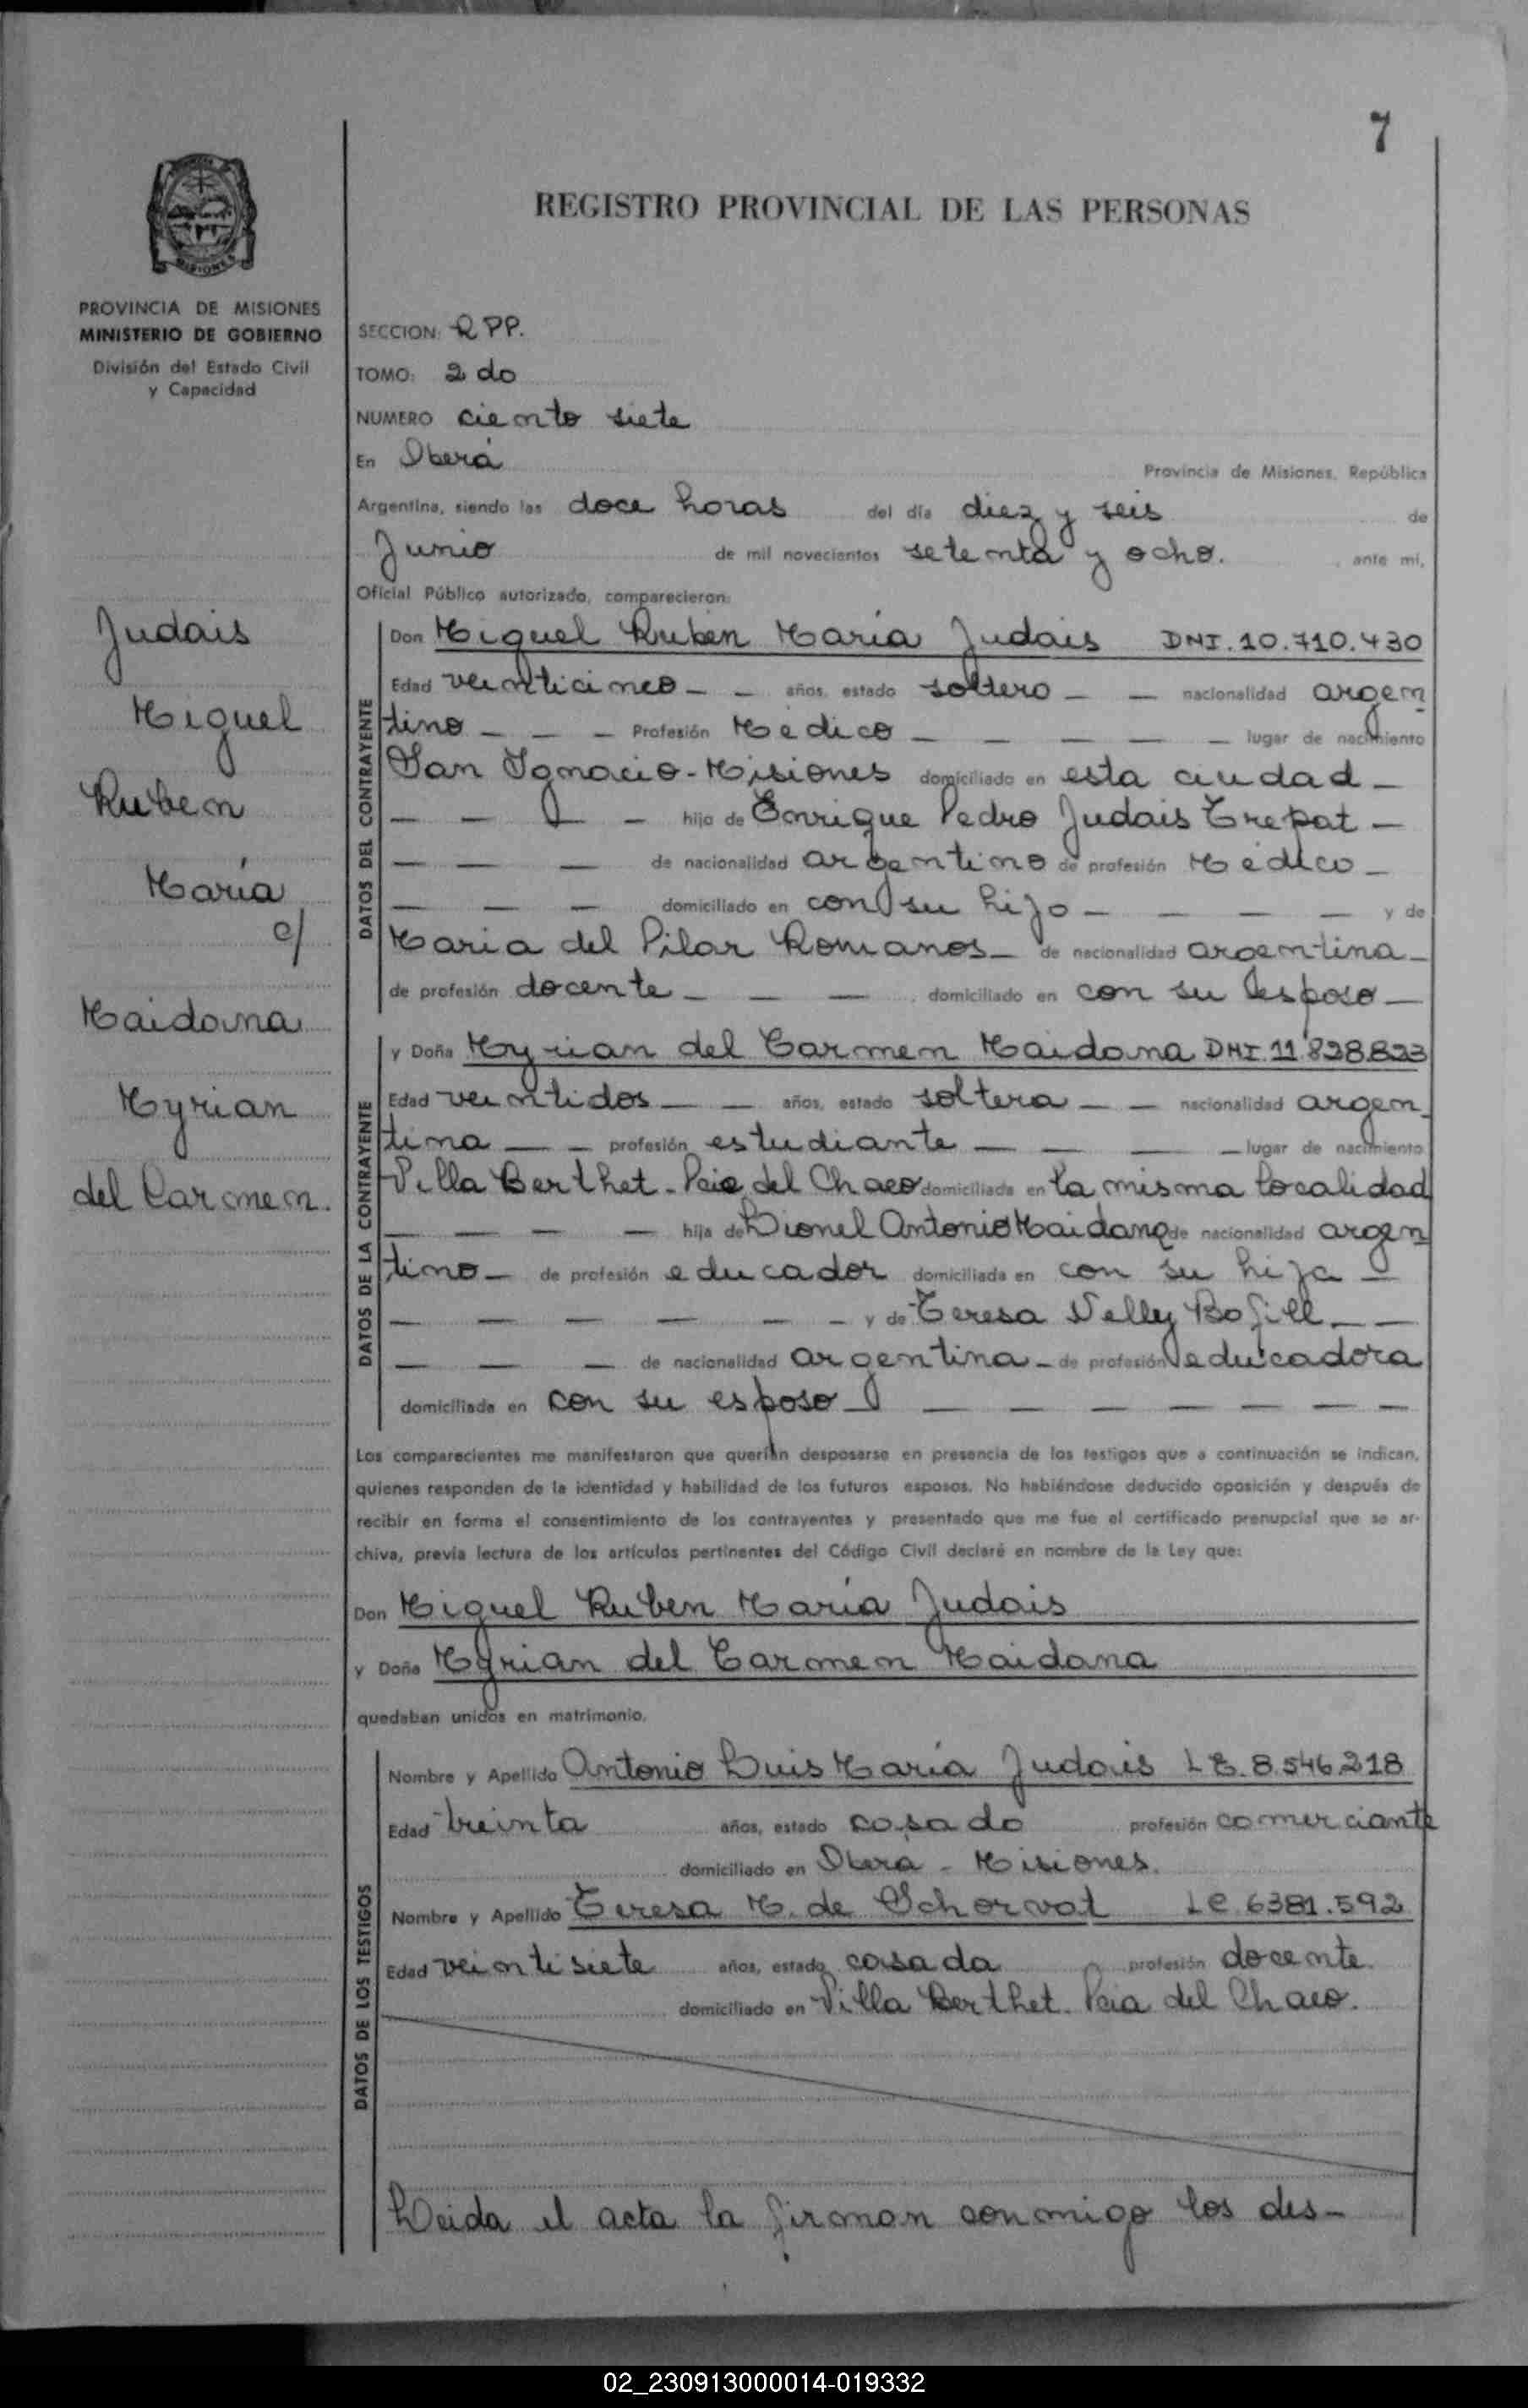 7
REGISTRO PROVINCIAL DE LAS PERSONAS
MISIONES
PROVINCIA DE MISIONES
MINISTERIO DE GOBIERNO
División del Estado Civil
y Capacidad
Judais
Miguel
Ruben
María
c/
Maidana
Myrian
del Carmen.
SECCION: RPP.
TOMO: 2do
NUMERO ciento siete
En Oberá Provincia de Misiones, República
Argentina, siendo las doce horas del día diez y seis de
Junio de mil novecientos setenta y ocho. , ante mi,
Oficial Público autorizado, comparecieron:
DATOS DEL CONTRAYENTE
Don Miguel Ruben María Judais DNI. 10.710.430
Edad veinticinco — — años, estado soltero — — nacionalidad argen
tino — — — Profesión Médico — — — — — lugar de nacimiento
San Ignacio - Misiones domiciliado en esta ciudad —
— — — — hijo de Enrique Pedro Judais Trepat —
— — — de nacionalidad argentino de profesión Médico —
— — — domiciliado en con su hijo — — — — y de
Maria del Pilar Romanos — de nacionalidad argentina —
de profesión docente — — — domiciliado en con su esposo —
DATOS DE LA CONTRAYENTE
y Doña Myrian del Carmen Maidana DNI. 11.828.823
Edad veintidos — — años, estado soltera — — nacionalidad argen
tina — — profesión estudiante — — — — lugar de nacimiento
Villa Berthet - Pcia del Chaco domiciliada en la misma localidad
— — — — hija de Lionel Antonio Maidana de nacionalidad argen
tino — de profesión educador domiciliada en con su hija —
— — — — — — y de Teresa Nelly Bofill — —
— — — de nacionalidad argentina — de profesión educadora
domiciliada en con su esposo — — — — — — — —
Los comparecientes me manifestaron que querían desposarse en presencia de los testigos que a continuación se indican,
quienes responden de la identidad y habilidad de los futuros esposos. No habiéndose deducido oposición y después de
recibir en forma el consentimiento de los contrayentes y presentado que me fue el certificado prenupcial que se ar-
chiva, previa lectura de los artículos pertinentes del Código Civil declaré en nombre de la Ley que:
Don Miguel Ruben María Judais
y Doña Myrian del Carmen Maidana
quedaban unidos en matrimonio.
DATOS DE LOS TESTIGOS
Nombre y Apellido Antonio Luis María Judais L E. 8.546.218
Edad treinta años, estado casado profesión comerciante
domiciliado en Obera - Misiones.
Nombre y Apellido Teresa M. de Schorvat LC 6381.592
Edad veintisiete años, estado casada profesión docente.
domiciliado en Villa Berthet. Pcia del Chaco.
Leida el acta la firman conmigo los des-
02_230913000014-019332